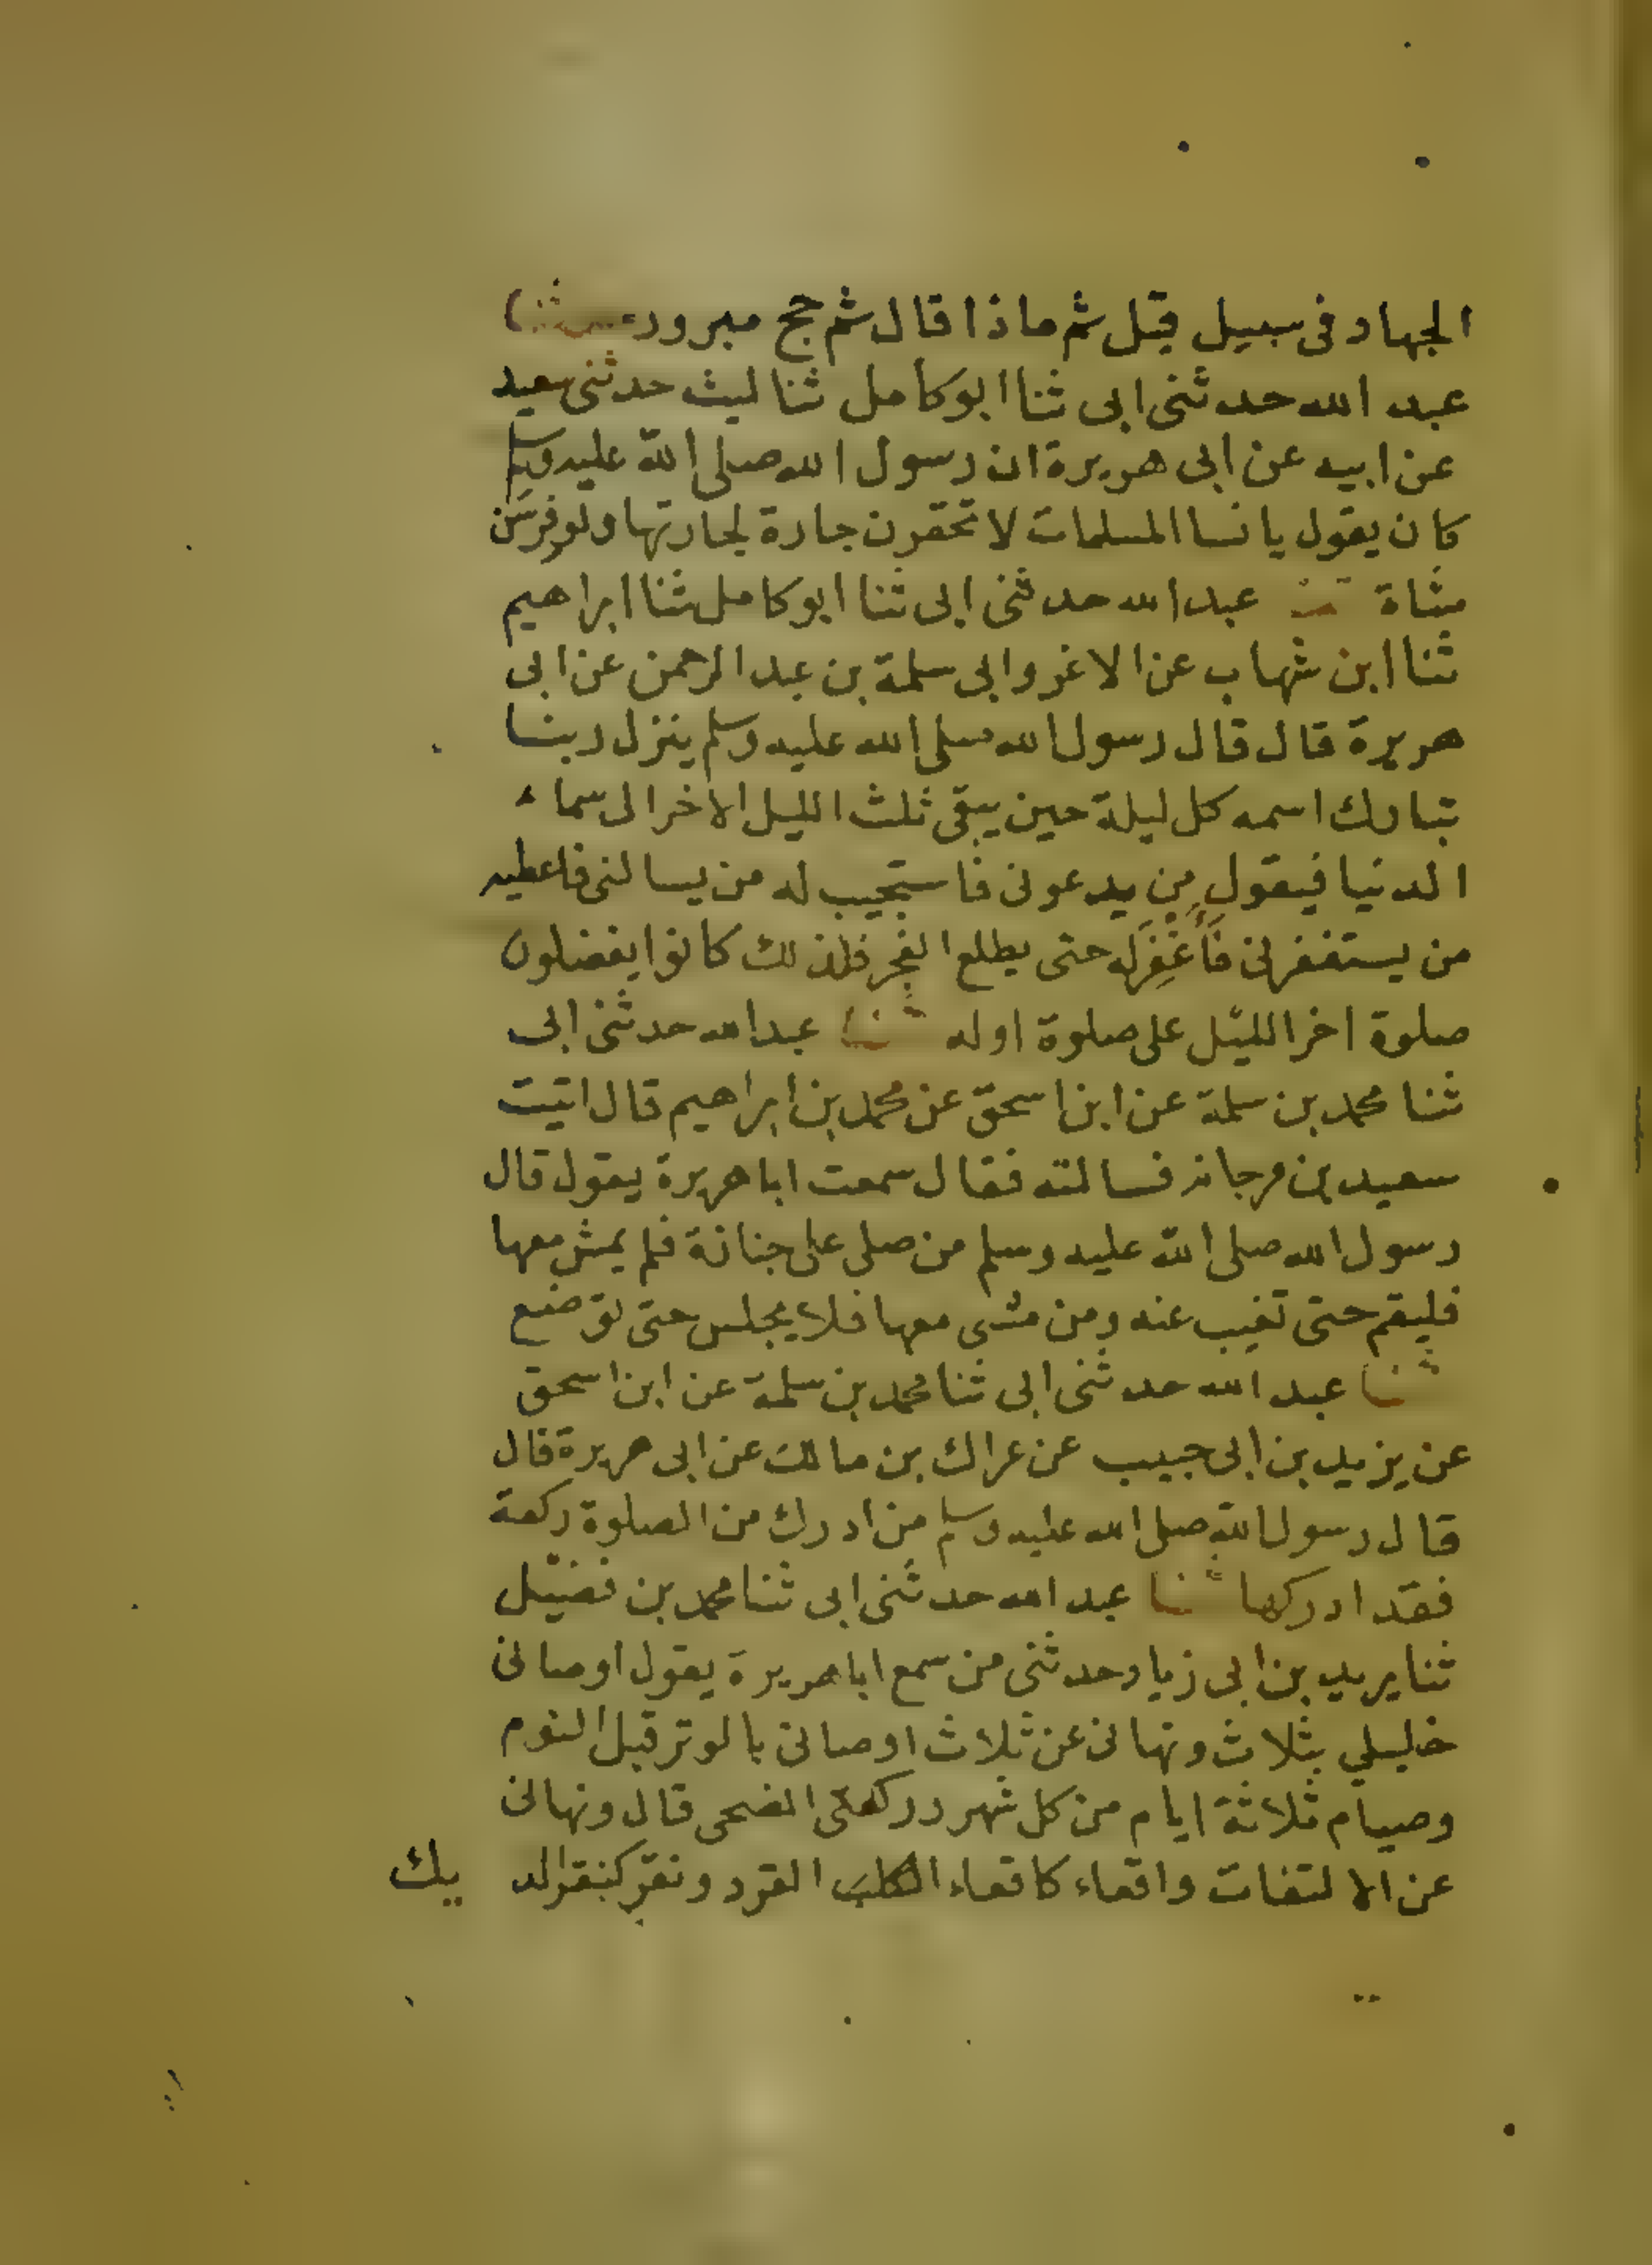 الجهاد فى سبيل قيل ثم ماذا قال ثم حج مبرور ثنا
عبد الله حدثنى ابى ثنا ابو كامل ثنا ليث حدثنى سعيد
عن ابيه عن ابى هريرة ان رسول الله صلى الله عليه وسلم
كان يقول يا نسا المسلمات لا تحقرن جارة لجارتها ولو فِرسَن
شاة ثنا عبد الله حدثنى ابى ثنا ابو كامل ثنا ابراهيم
ثنا ابن شهاب عن الاغر وابى سلمة بن عبد الرحمن عن ابى
هريرة قال قال رسول الله صلى الله عليه وسلم ينزل ربنا
تبارك اسمه كل ليلة حين يبقى ثلث الليل الاخر الى سماء
الدنيا فيقول من يدعونى فاستجيب له من يسالنى فاعطيه
من يستغفرنى فَأَغْفِرَله حتى يطلع الفجر فلذلك كانوا يفضلون
صلوة اخر الليل على صلوة اوله ثنا عبد الله حدثنى ابى
ثنا محمد بن سلمة عن ابن اسحق عن محمد بن ابراهيم قال اتيت
سعيد بن مرجانه فسالته فقال سمعت ابا هريرة يقول قال
رسول الله صلى الله عليه وسلم من صلى على جنازة فلم يمش معها
فليقم حتى تغيب عنه ومن مشى معها فلا يجلس حتى توضع
ثنا عبد الله حدثنى ابى ثنا محمد بن سلمة عن ابن اسحق
عن يزيد بن ابى حبيب عن عراك بن مالك عن ابى هريرة قال
قال رسول الله صلى الله عليه وسلم من ادرك من الصلوة ركعة
فقد ادركها ثنا عبد الله حدثنى ابى ثنا محمد بن فضيل
ثنا يزيد بن ابى زياد حدثنى من سمع ابا هريرة يقول اوصانى
خليلي بثلاث ونهانى عن ثلاث اوصانى بالوتر قبل النوم
وصيام ثلاثة ايام من كل شهر وركعتى الضحى قال ونهانى
عن الالتفات واقعاء كاقعاء القرد ونقر كنقر الد يك